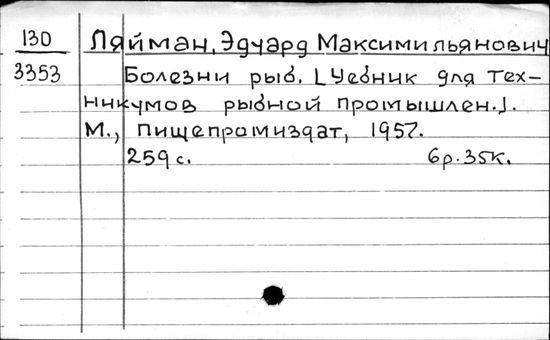 130 Ляйман, Эдуард Максимильянович
3353 Болезни рыб. [Учебник для тех-
никумов рыбной промышлен.].
М., Пищепромиздат, 1957.
259 с. 6р. 35к.